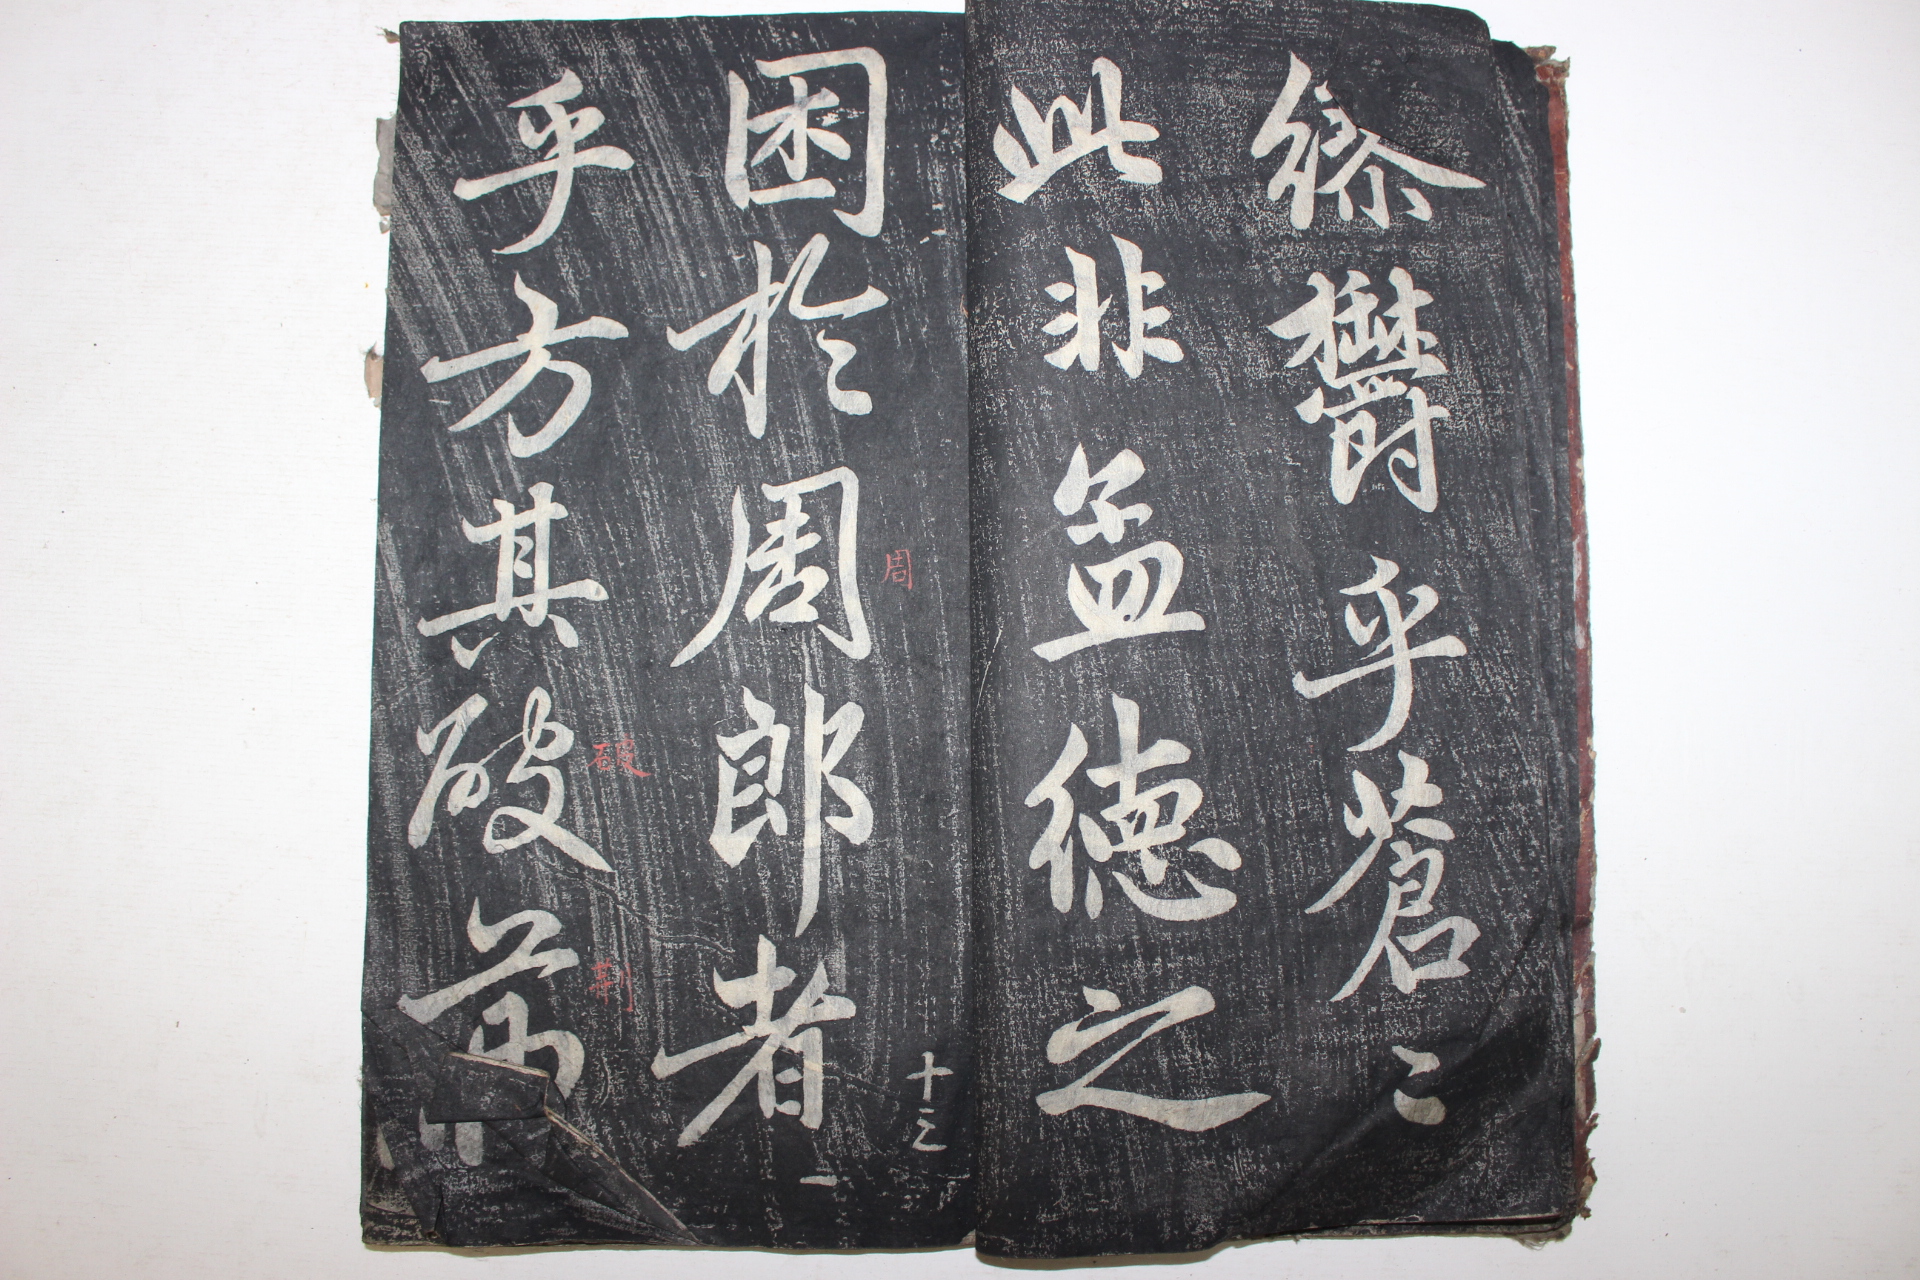 繆鬱乎蒼〻
此非孟德之
困於周郎者
乎方其破荊
周
破
荊
十三